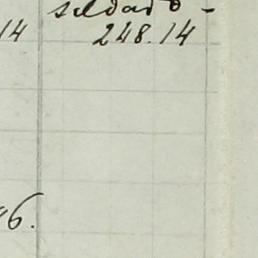 saldado -
14 248.14
6.